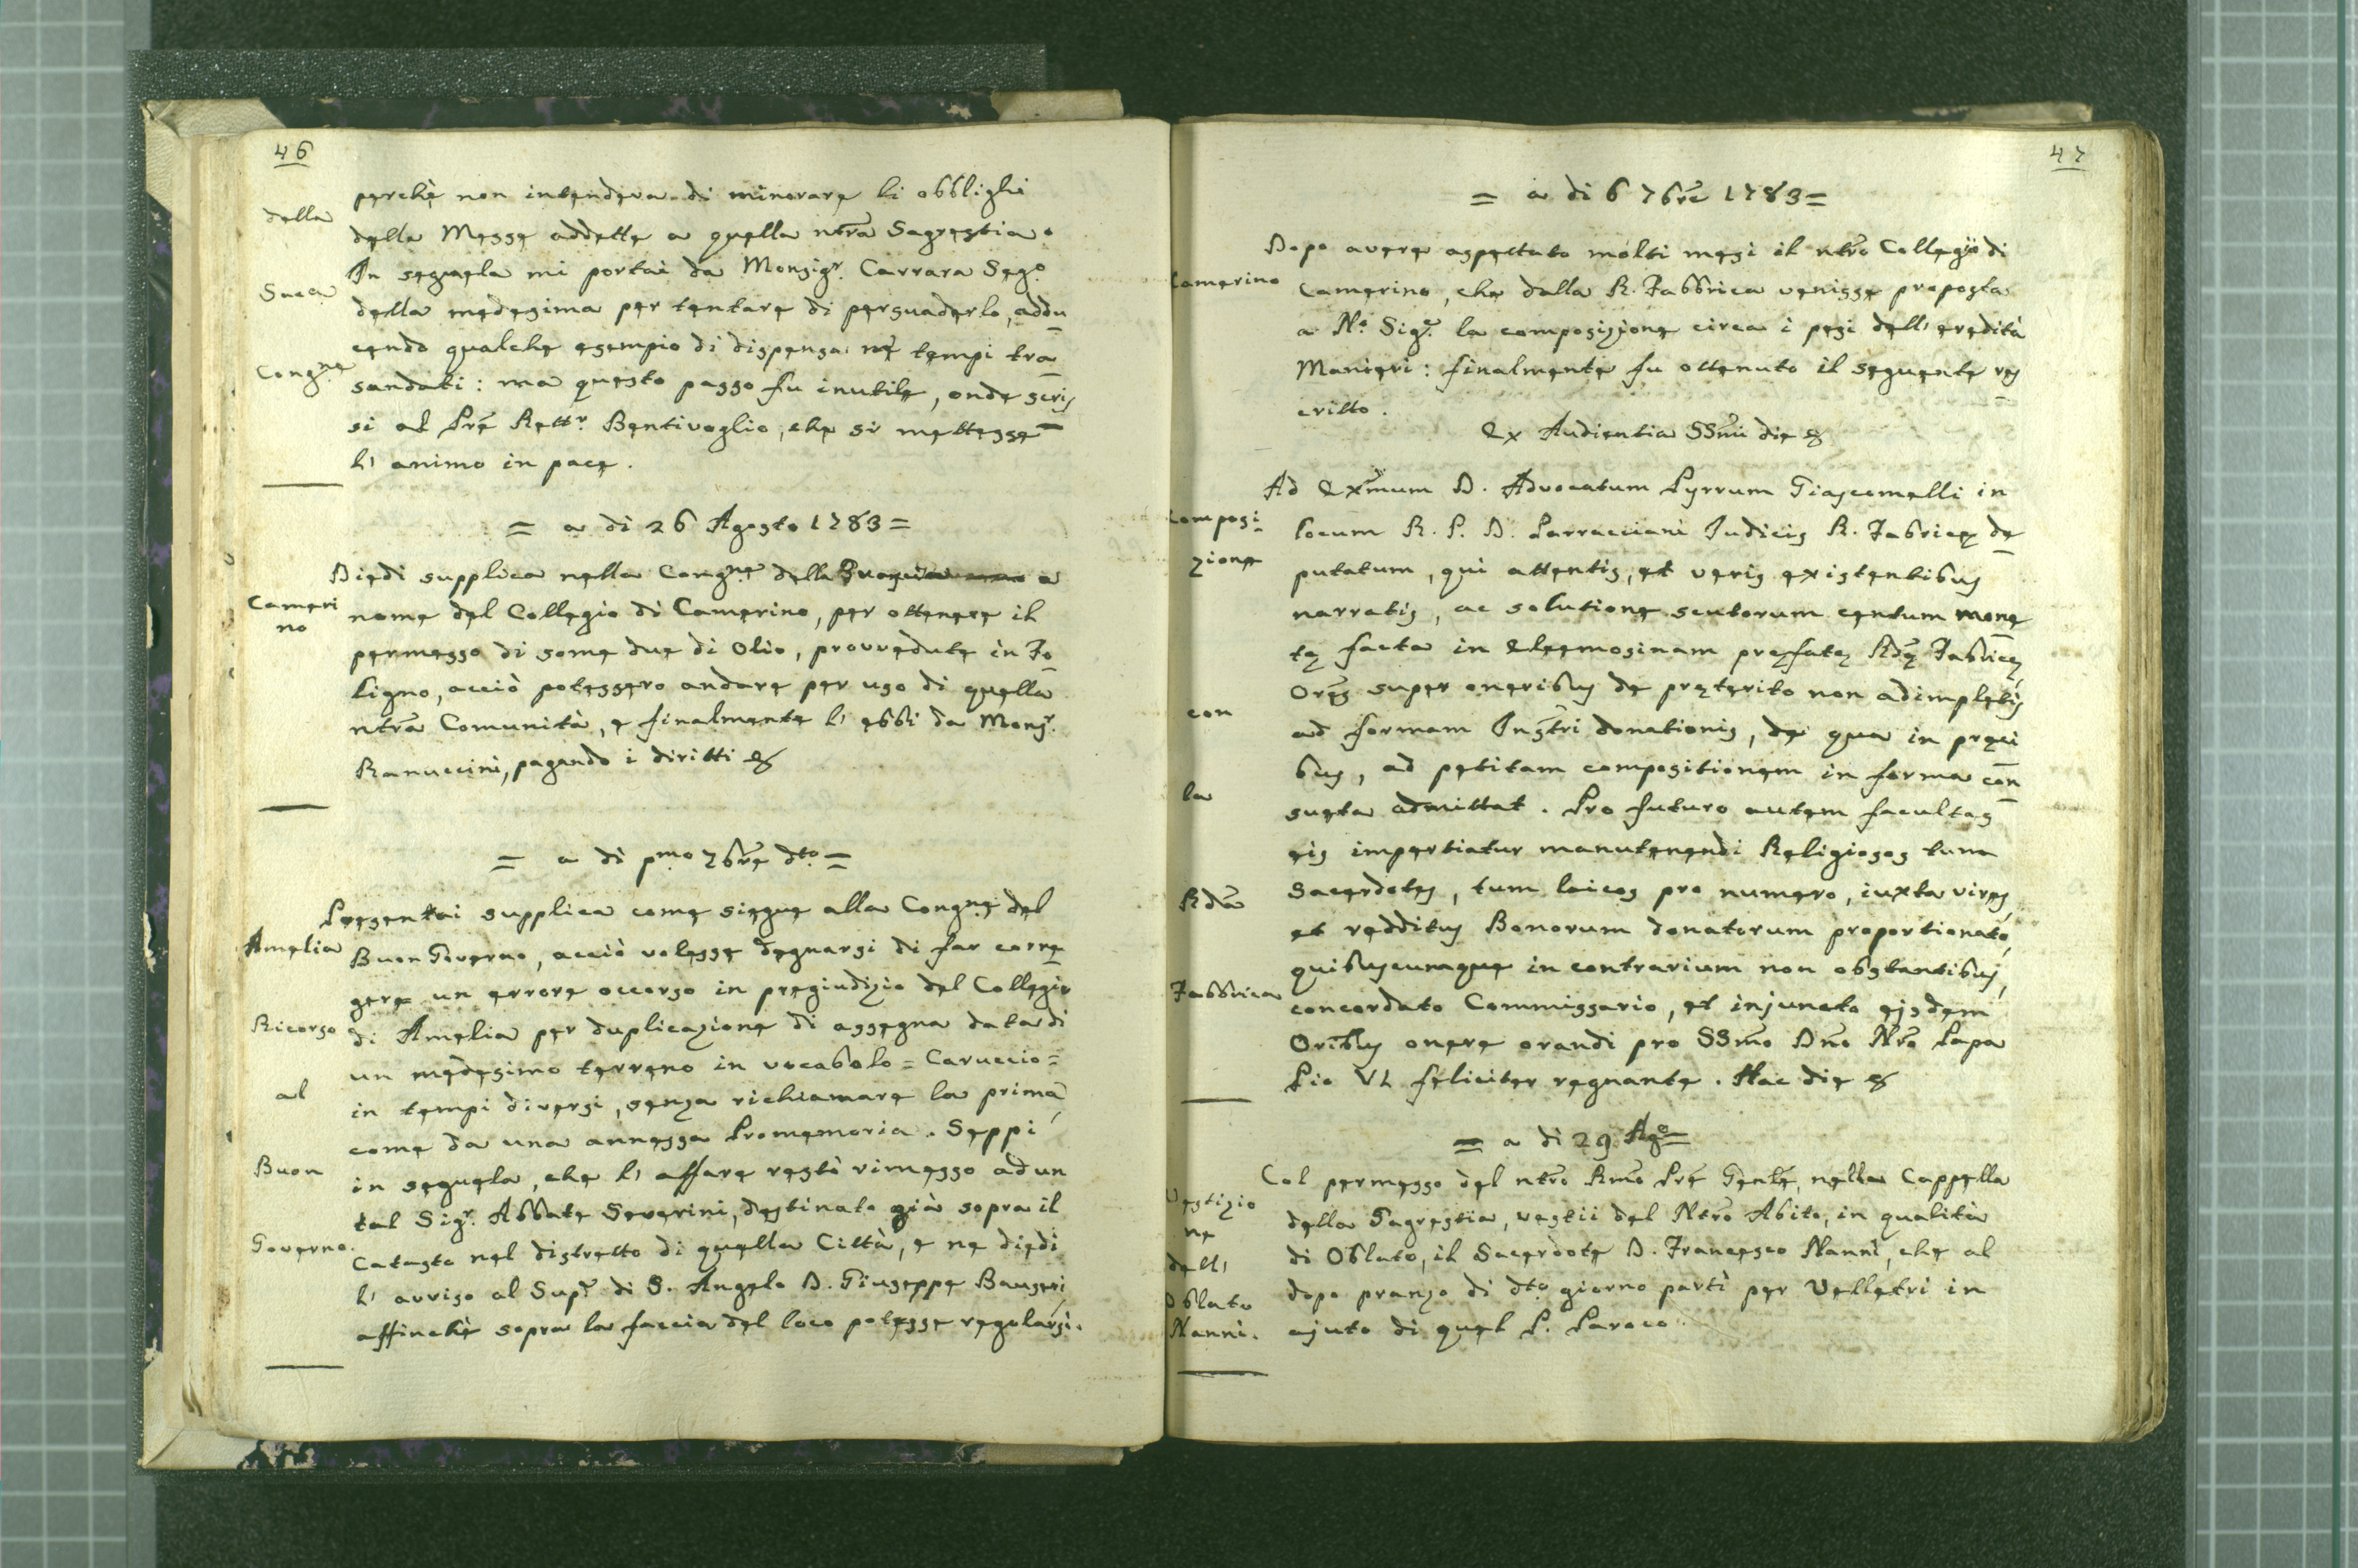 46
perchè non intendeva di minorare li obblighi
della
delle Messe addette a quella ntra Sagrestia.
In seguela mi portai da Monsigr. Carrara Sego
Saca
della medesima per tentare di persuaderlo, addu
cendo qualche esempio di dispensa ne tempi tra
Congne
sandati: ma questo passo fu inutile, onde scris
si al Prẽ Rettr. Bentivoglio, che si mettesse
l' animo in pace.
= a di 26 Agosto 1783 =
Diedi supplica nella Congne della a
Cameri
no
nome del Collegio di Camerino, per ottenere il
permesso di some due di Olio, provvedute in Fo
ligno, acciò potessero andare per uso di quella
ntra Comunità, e finalmente l' ebbi da Monsr.
Ranuccini, pagando i diritti &
= a di pmo 7bre dto =
Presentai supplica come siegue alla Congne del
Amelia
Buon Governo, acciò volesse degnarsi di far corre
gere un errore occorso in pregiudizio del Collegio
Ricorso
di Amelia per duplicazione di assegna data di
un medesimo terreno in vocabolo = Caruccio =
al
in tempi diversi, senza richiamare la prima,
come da una annessa Promemoria. Seppi
Buon
in seguela, che l' affare restò rimesso ad un
tal Sigr. Abbate Severini, destinato già sopra il
Governo.
Catasto nel distretto di quella Città, e ne diedi
l' avviso al Supr di S. Angelo D. Giuseppe Bauseri,
affinchè sopra la faccia del loco potesse regolarsi.
47
= a di 6 7bre 1783 =
Dopo avere aspettato molti mesi il ntro Collegio di
Camerino
Camerino, che dalla R. Fabbrica venisse proposta
a No Sige. la composizione circa i pesi dell' eredità
Manieri: finalmente fu ottenuto il seguente res
critto.
Ex Audientia SSmi die &
Ad Exmum D. Advocatum Pyrrum Giascomelli in
Composi
zione
locum R. P. D. Parracciani Iudicis R. Fabricę de
putatum, qui attentis, et veris existentibus
narratis, ac solutione scutorum centum mone
tę facta in Eleemosinam pręfatę Rdę Fabricę,
Ores super oneribus de pręterito non adimpletis
con
ad formam Instri donationis, de qua in pręci
bus, ad petitam compositionem in forma con
la
sueta admittat. Pro futuro autem facultas
eis impertiatur manutenendi Religiosos tum
Rda
Sacerdotes, tum laicos pro numero, iuxta vires,
et redditus Bonorum donatorum proportionato,
Fabbrica
quibuscumque in contrarium non obstantibus,
concordato Commissario, et injuncto eisdem
Oribus onere orandi pro SSmo Dno Nro Papa
Pio VI feliciter regnante. Hac die &
= a di 29 Ago =
Col permesso del ntro Rmo Prẽ Gente, nella Cappella
Vestizio
ne
della Sagrestia, vestii del Ntro Abito, in qualità
dell'
di Oblato, il Sacerdote D. Francesco Nanni, che al
Oblato
dopo pranzo di dto giorno partì per Velletri in
Nanni.
ajuto di quel P. Paroco.